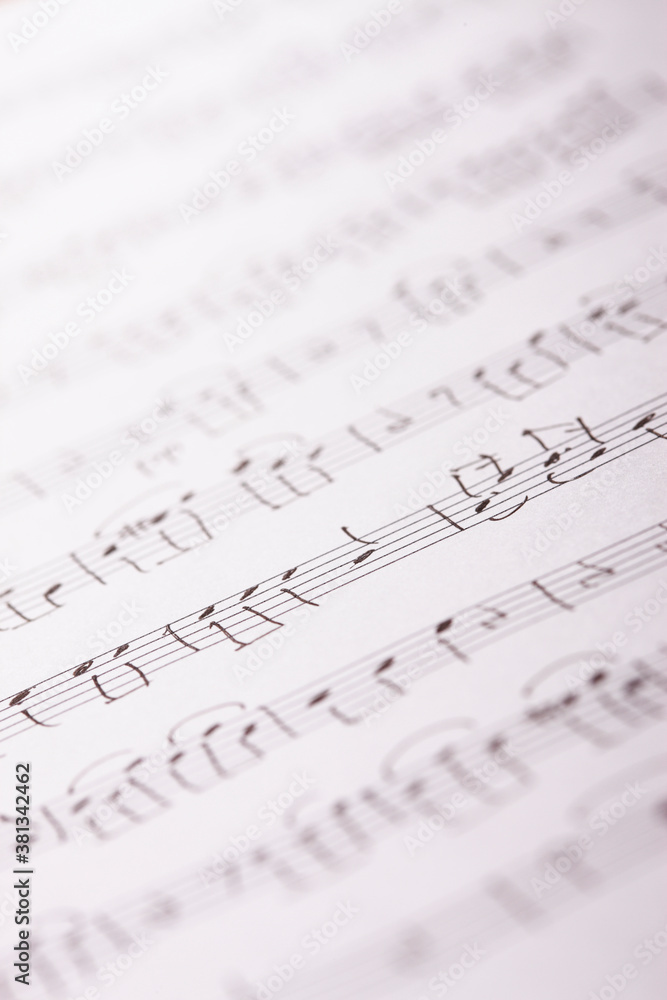 Adobe Stock | #381342462